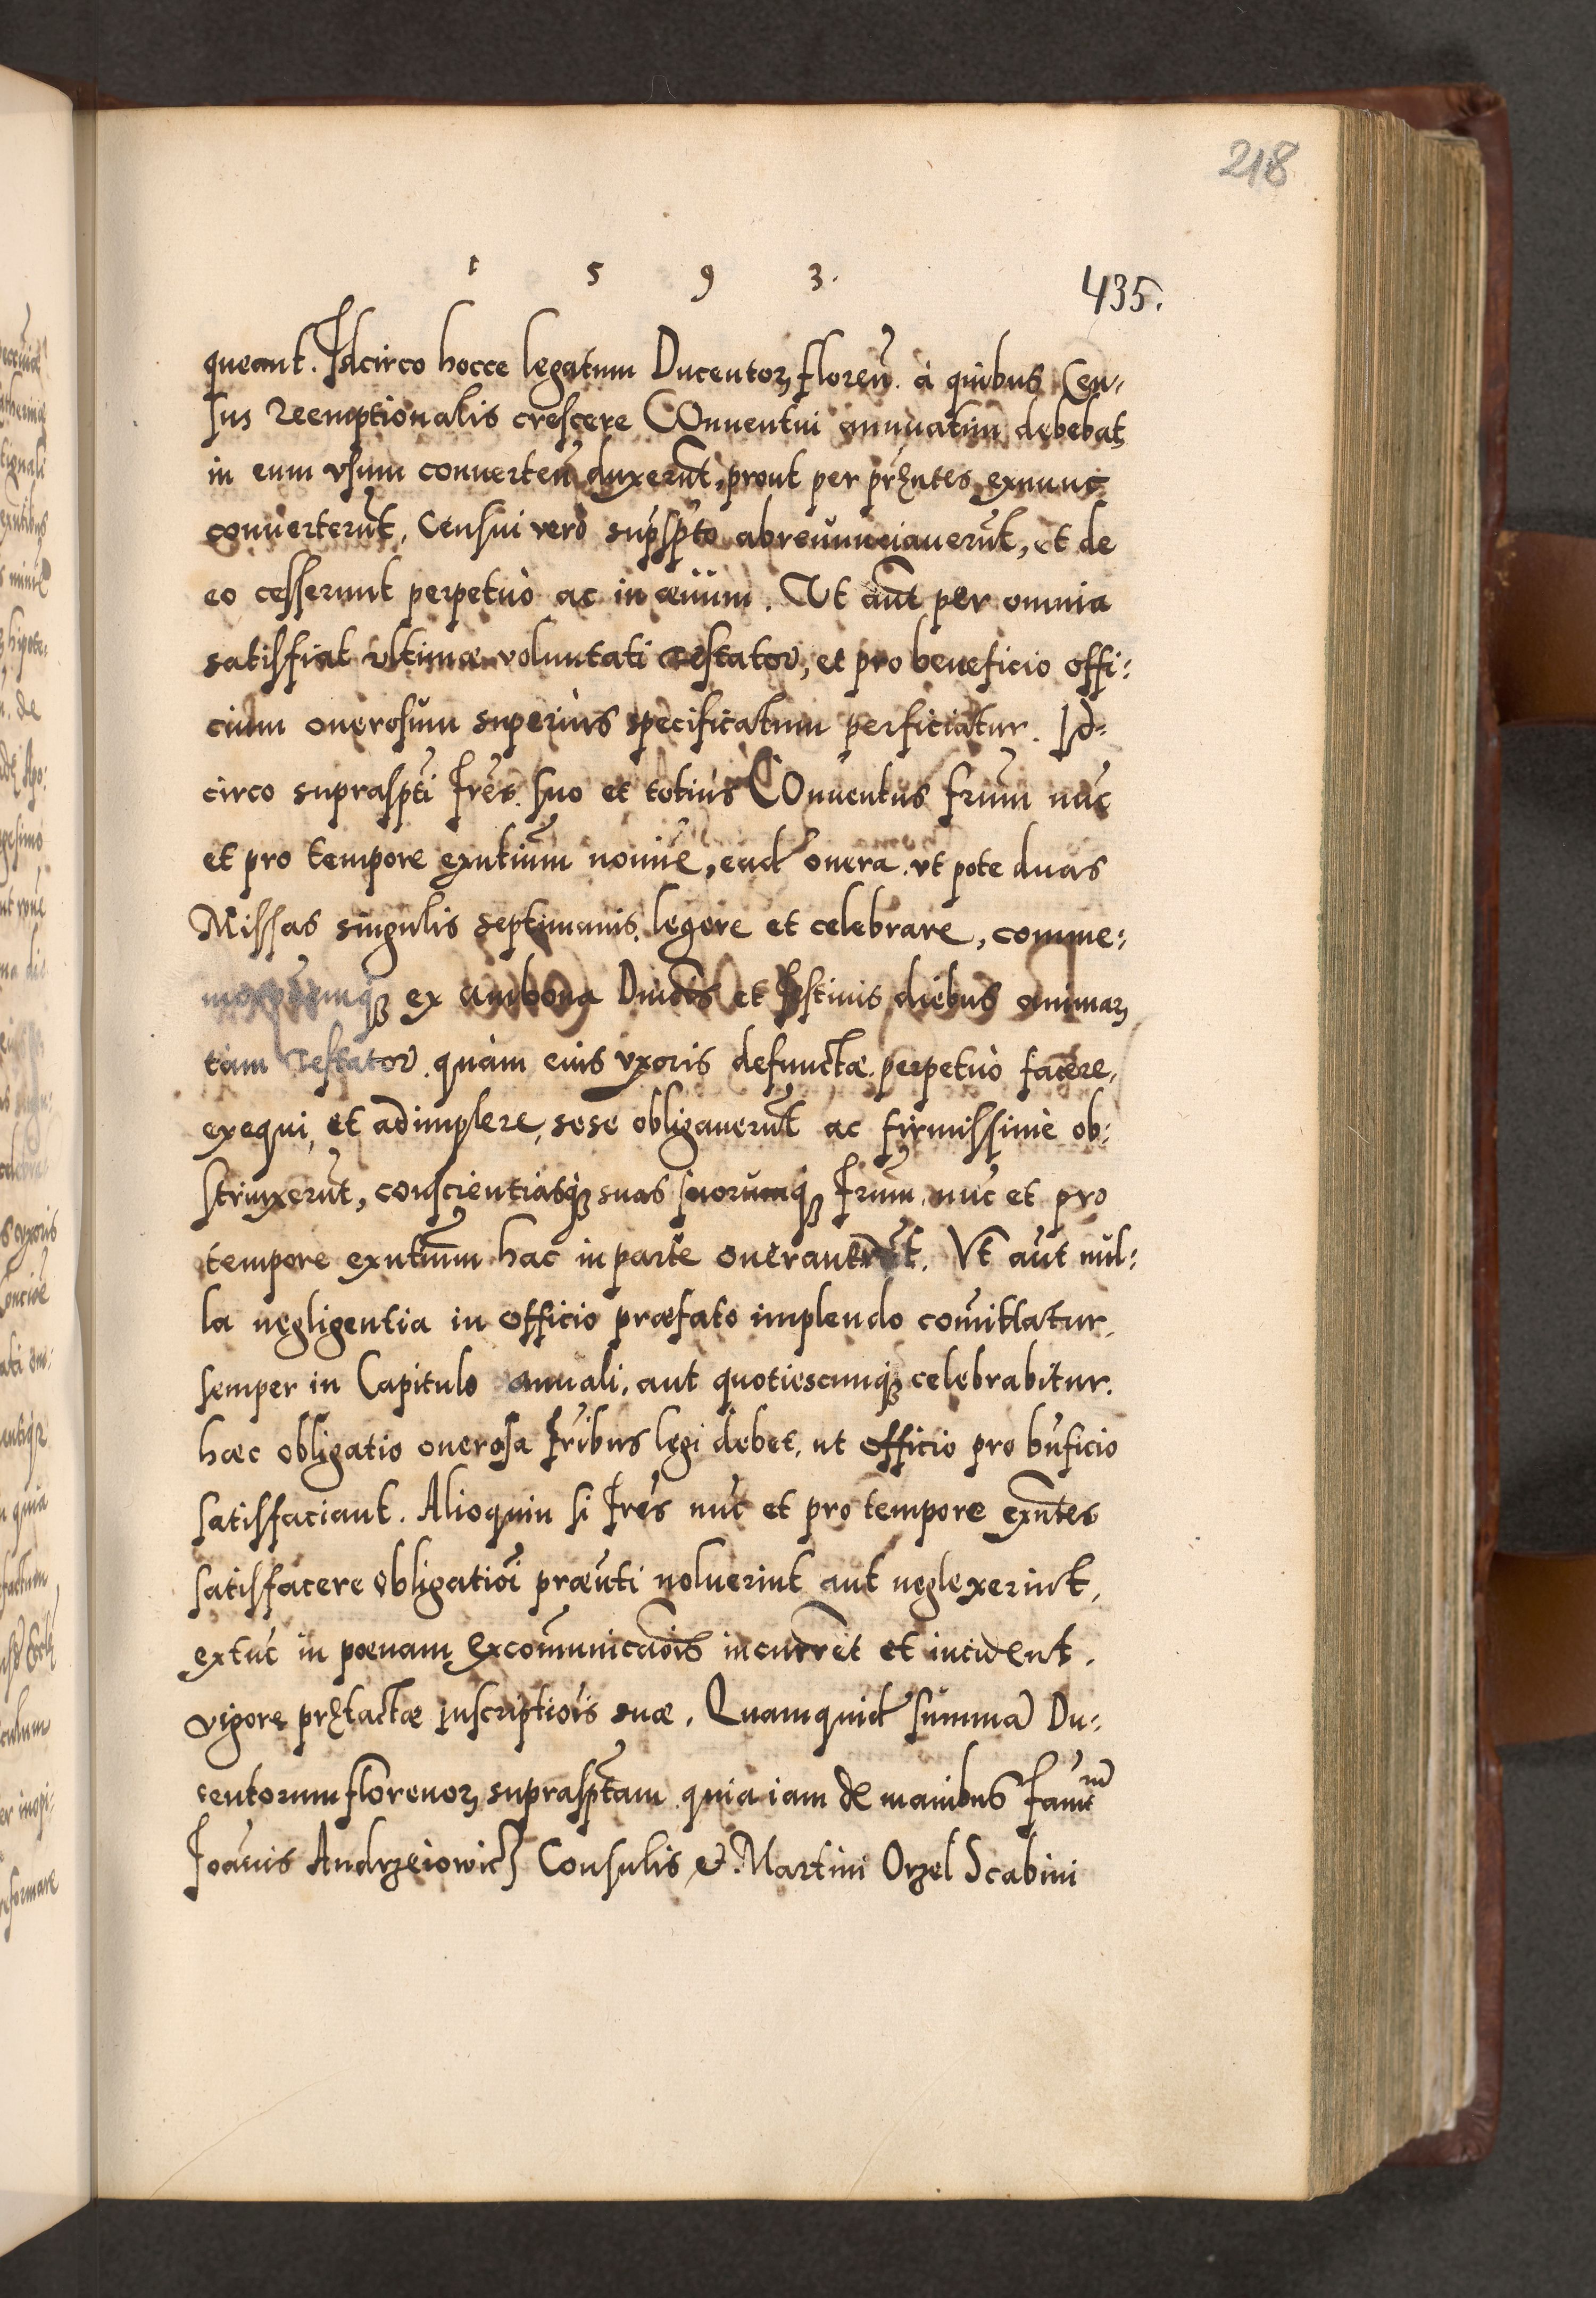 218
1 5 9 3.
435.
queant. Idcirco hocce legatum Ducentoꝝ floreñ. à quibus Cen-
sus Reemptionalis crescere COnuentui annuatim debebat,
in eum vsum conuerteñ duxerũt, prout per prñtes exnunc
conuerterũt, Censui verò supsptò abrenunciauerũt, et de
eo cesserunt perpetuò ac in æuum. Ut aũt per omnia
satisfiat vltimæ voluntati Testator, et pro beneficio offi:
cium onerosum superius specificatum perficiatur. Id-
circo supraspti Frẽs. suo et totius COnuentus Frum nũc
et pro tempore exñtium nomĩe, ead onera. vt pote duas
Missas singulis septimanis. legere et celebrare, comme:
ex ambona Dnicis et Festiuis diebus animaꝝ
tam Testator. quàm eius vxoris defunctæ perpetuò facere,
exequi, et adimplere, sese obligauerũt ac firmissimè ob:
strinxerũt, conscientiasq̃ suas suorumq̃ Frum nũc et pro
tempore exñtium hac in parte onerauerũt. Vt aũt nul:
la negligentia in officio præfato implendo comittatur.
semper in Capitulo annuali, aut quotiescunq̃ celebrabitur.
hæc obligatio onerosa Fribus legi debet, ut officio pro bñficio
satisfaciant. Alioquin si Frẽs nũc et pro tempore exñtes
satisfacere obligatiõi præñti noluerint aut neglexerint,
extũc in poenam Excomunicaõis incurrẽt et incident.
vigore prætactæ inscriptiõis suæ. Quamquid summã Du:
centorum florenoꝝ suprasptam quia iam de manibus Famt
Joanis Andrzeiowicz Consulis et Martini Orzel Scabini